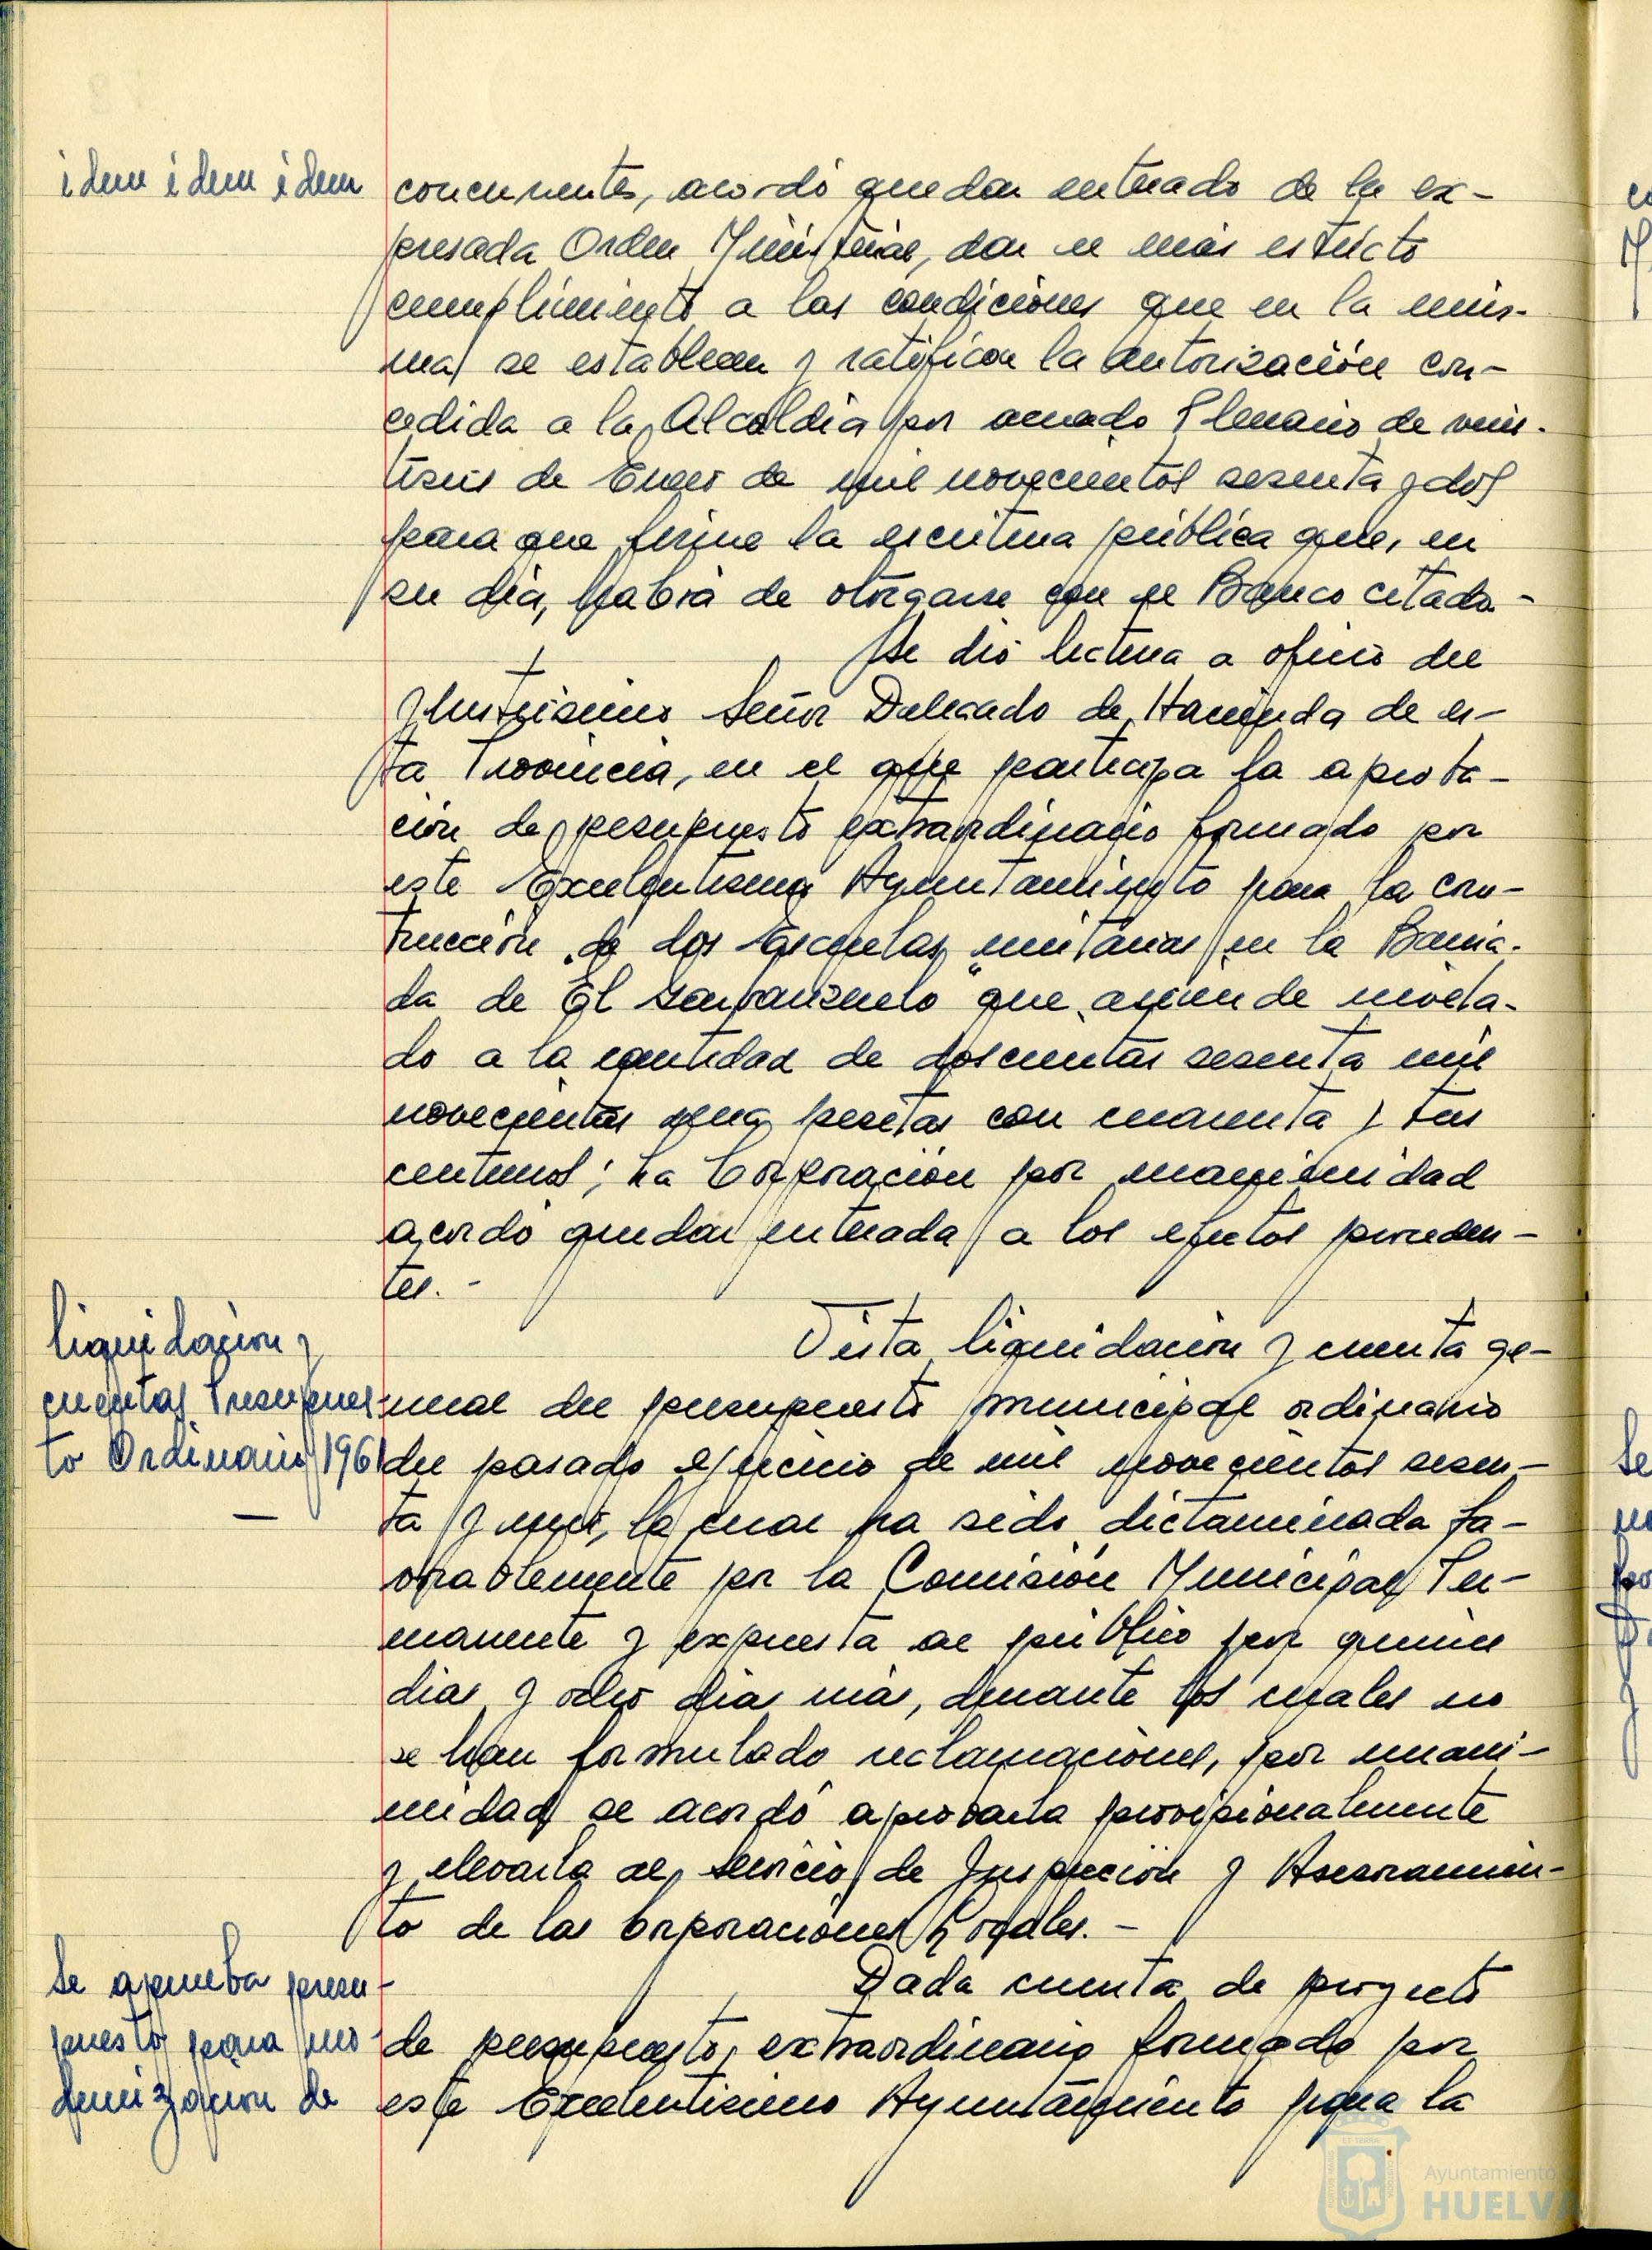 idem idem idem
concurrentes, acordó quedar enterado de la ex-
presada Orden Ministerial, dar el más estricto
cumplimiento a las condiciones que en la mis-
ma se establecen y ratificar la autorización con-
cedida a la Alcaldía por acuerdo Plenario de vein-
tiseis de Enero de mil novecientos sesenta y dos
para que firme la escritura pública que, en
su día, habrá de otorgarse con el Banco citado.-
Se dió lectura a oficio del
Ilustrísimo Señor Delegado de Hacienda de es-
ta Provincia, en el que participa la aproba-
ción de presupuesto extraordinario formado por
este Excelentísimo Ayuntamiento para la cons-
trucción de dos Escuelas unitarias en la Barria-
da de "El Garbanzuelo" que asciende nivela-
do a la cantidad de doscientas sesenta mil
novecientas una pesetas con cuarenta y tres
centimos; La Corporación por unanimidad
acordó quedar enterada a los efectos proceden-
tes.-
liquidación y
cuentas Presupues-
to Ordinario 1961
Vista liquidación y cuenta ge-
neral del presupuesto municipal ordinario
del pasado ejercicio de mil novecientos sesen-
ta y uno, la cual ha sido dictaminada fa-
vorablemente por la Comisión Municipal Per-
manente y expuesta al público por quince
días y ocho días más, durante los cuales no
se han formulado reclamaciones, por unani-
midad se acordó aprobarla provisionalmente
y elevarla al Servicio de Inspección y Asesoramien-
to de las Corporaciones Locales.-
Se aprueba presu-
puesto para mo-
dernización de
Dada cuenta de proyecto
de presupuesto extraordinario formado por
este Excelentísimo Ayuntamiento para la
Ayuntamiento de
HUELVA